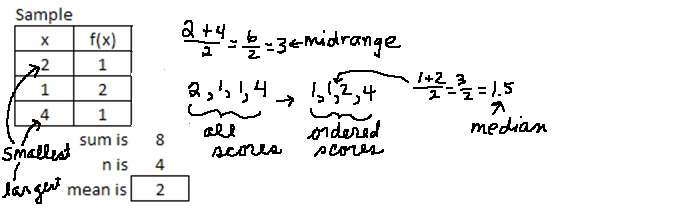 Sample
x f(x)
2 1
1 2
4 1
sum is 8
n is 4
mean is 2
smallest
largest
2+4/2 = 6/2 = 3 ← midrange
2, 1, 1, 4 → 1, 1, 2, 4
all scores
ordered scores
1+2/2 = 3/2 = 1.5
median